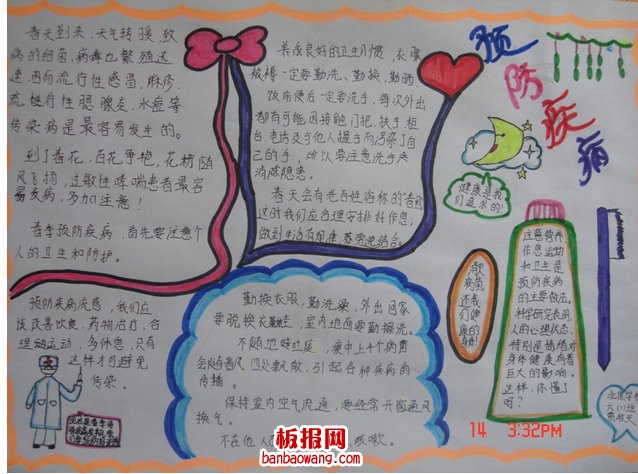 预防疾病
春天到来,天气转暖,致
病的细菌,病毒也繁殖迅
速,因向流行性感冒,麻疹,
流行性腮腺炎,水痘等
传染病是最容易发生的。
到了春花,百花争艳,花粉随
风飞扬,过敏性哮喘患者最容
易发病,多加注意!
春季预防疾病,首先要注意个
人的卫生和防护。
预防疾病流感,我们应
该改善饮食,药物治疗,合
理动运动,多休息,只有
这样才可避免
传染。
养成良好的卫生习惯,衣服
被褥一定要勤洗、勤换、勤晒。
饭前便后一定要洗手,每次外出
都有可能因接触门把,扶手,柜
台,电话及与他人握手而污染了自
己的手,所以要注意洗手来
消除隐患。
春天会有老百姓俗称的
这时我们应合理安排好作息,
做到生活有规律,劳逸结合。
勤换衣服,勤洗澡,外出回家
要脱换衣鞋,室内地面要勤擦洗。
不随地吐痰,痰中上4个病菌
会随着风四处飘散,引起各种疾病的
传播。
保持室内空气流通,要经常开窗通风
换气。
不在他人 咳嗽。
健康是我
们追求的!
消灭
病菌
还我
们健
康的
身体!
注意营养,
作息运动
和卫生是
预防疾病
的主要做法。
科学研究表明,
人的心理状态,
特别是情绪对
身体健康有着
巨大的影响。
这样,你懂了
吗?
14 3:32PM
板报网
banbaowang.com